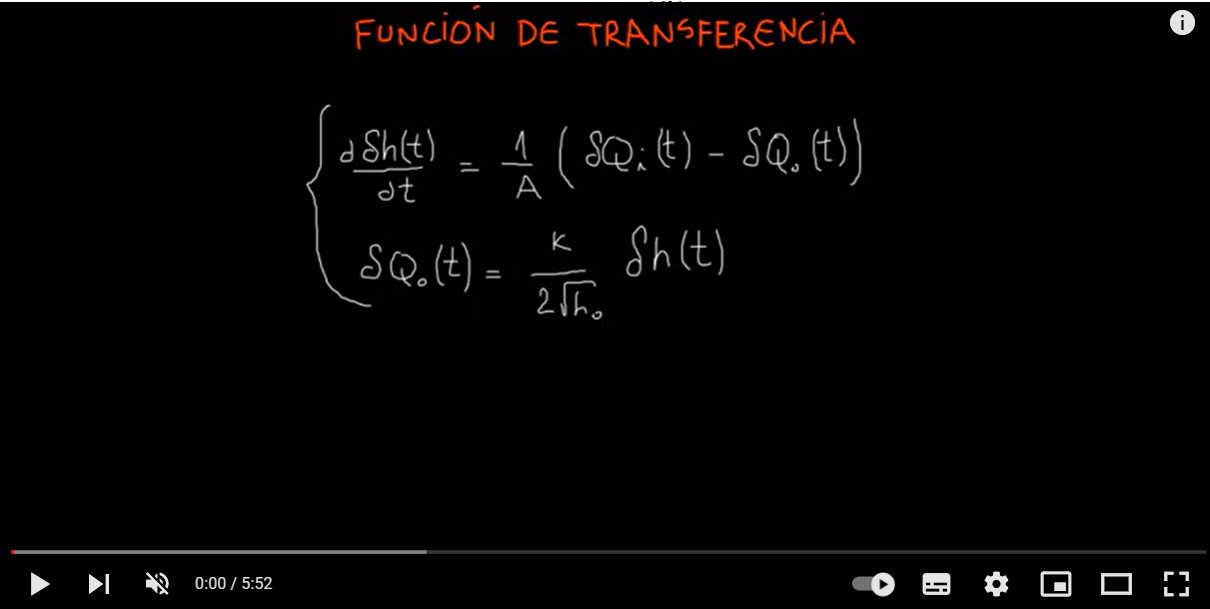 FUNCIÓN DE TRANSFERENCIA
d δh(t) / dt = 1 / A ( δQi(t) - δQo(t) )
δQo(t) = K / 2√ho δh(t)
0:00 / 5:52